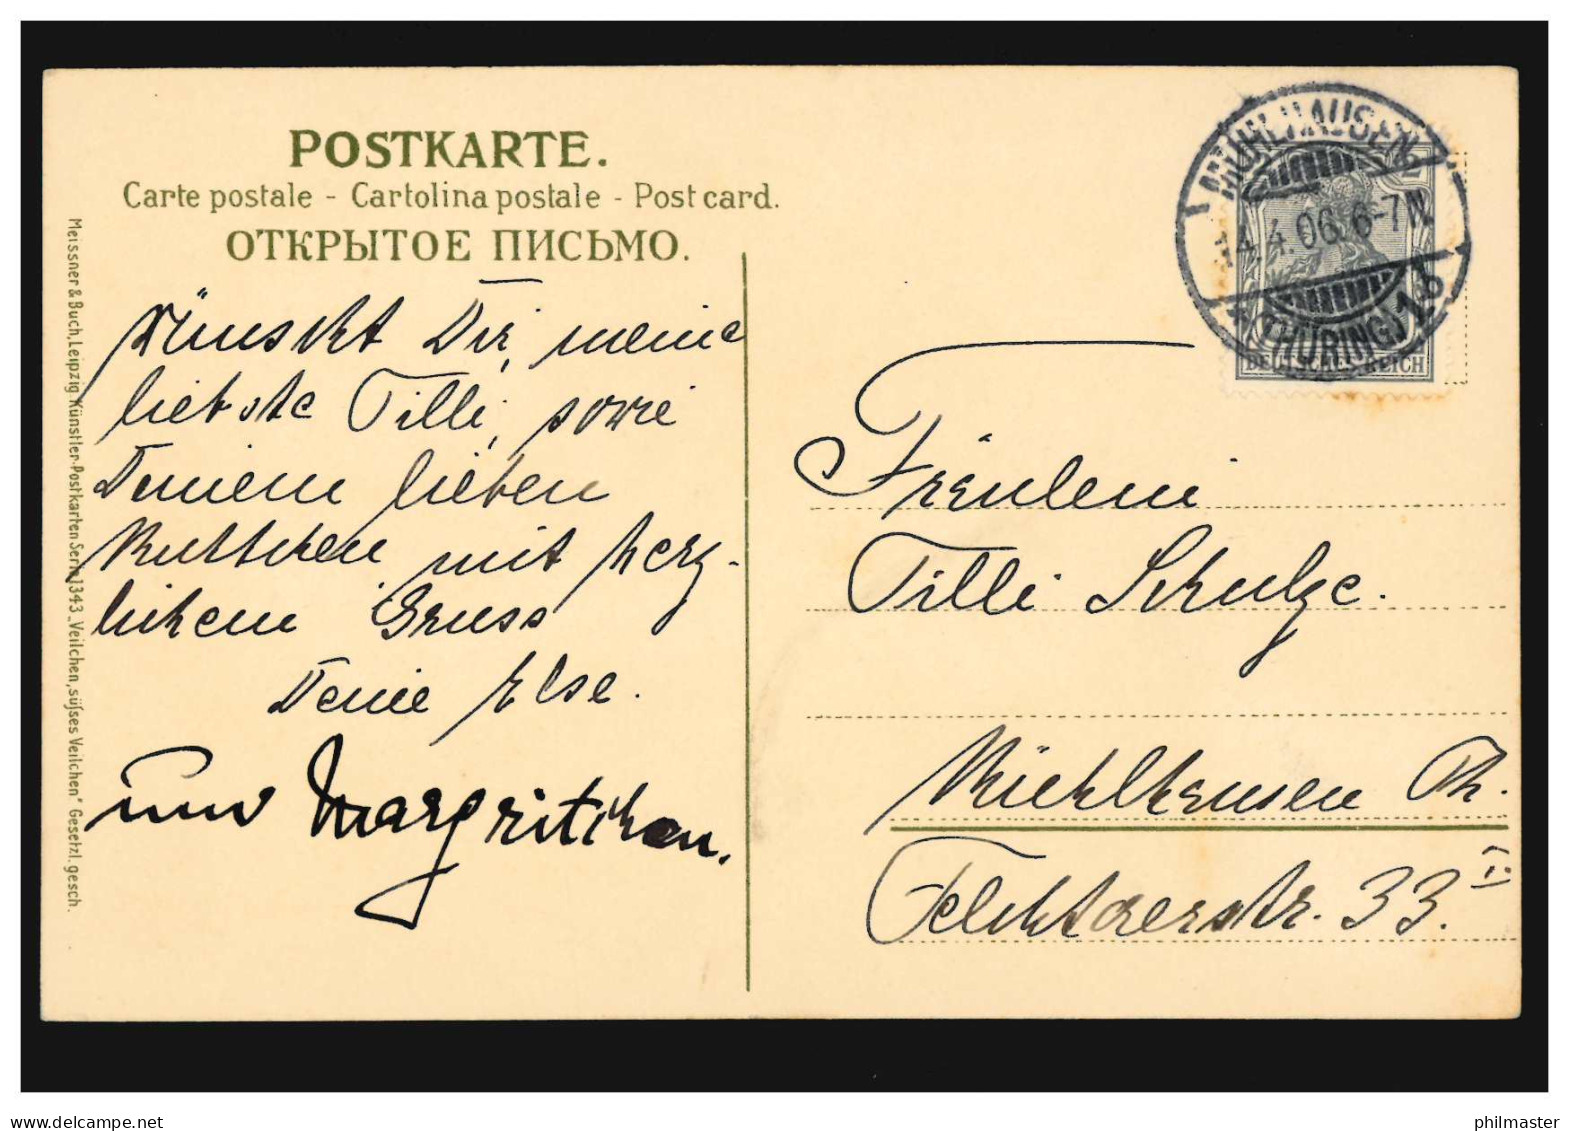 POSTKARTE.
Carte postale - Cartolina postale - Post card.
ОТКРЫТОЕ ПИСЬМО.
Meissner & Buch, Leipzig Künstler-Postkarten Serie 1343 „Veilchen, süsses Veilchen" Gesetzl. gesch.
Wünscht Dir, meine
liebste Tilli, sowie
Deinem lieben
Muttchen mit herz-
lichem Gruss
Deine Else.
und Margritchen.
MÜHLHAUSEN
4.06.6-7N.
(THÜRING.) 1b
DEUTSCHES REICH
2
Fräulein
Tilli Schulze.
Mühlhausen Th.
33.
hdelcampe.net
philmaster